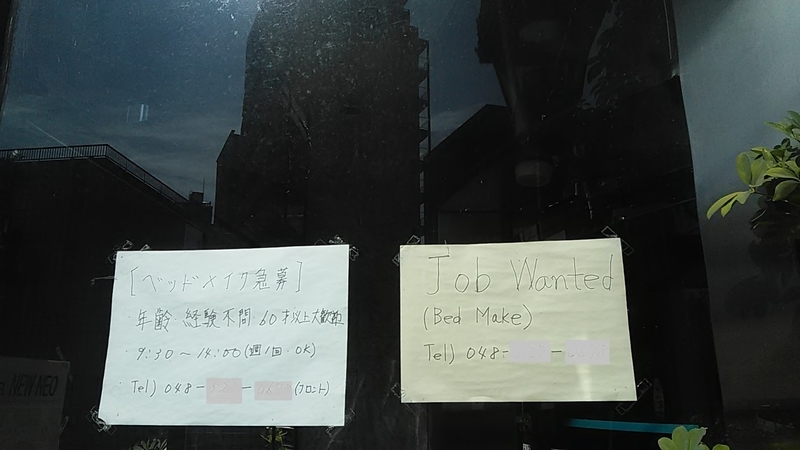 [ベッドメイク急募]
年齢 経験不問 60才以上大歓迎
9:30～14:00(週1回 OK)
Tel) 048- - (フロント)
Job Wanted
(Bed Make)
Tel) 048- -
NEW NEO